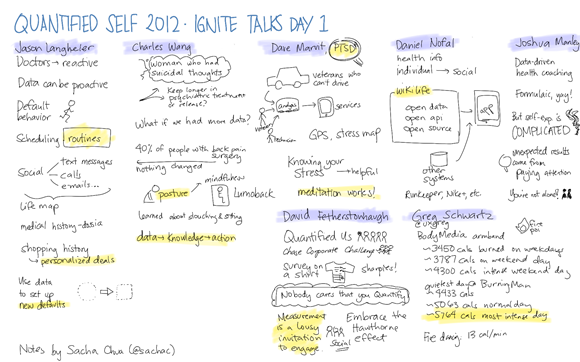 QUANTIFIED SELF 2012 · IGNITE TALKS DAY 1
Jason Langheier
Doctors → reactive
Data can be proactive
Default
behavior
Scheduling routines
Social
text messages
calls
e-mails...
Life map
medical history
shopping history
→ personalized deals
Use data
to set up
new defaults
Charles Wang
woman who had
suicidal thoughts
Keep longer in
psychiatric treatment
or release?
What if we had more data?
40% of people with back pain
surgery
nothing changed
mindfulness
posture
Lumoback
Learned about slouching & sitting
data → knowledge → action
Dave Marvit PTSD
veterans who
can't drive
analysis
services
GPS, stress map
Knowing your
stress → helpful
meditation works!
Daniel Nofal
health info
individual → social
wikilife
open data
open api
open source
app
other
systems
Runkeeper, Nike+, etc.
Joshua Manley
Data-driven
health coaching
Formulaic, yay!
But self-exp is
COMPLICATED
unexpected results
came from
paying attention
You're not alone!
David Fetherstonhaugh
Quantified Us
Chase Corporate Challenge
Survey on
a shirt
sharpies!
Nobody cares that you Quantify
Measurement
is a lousy
invitation
to engage.
Social
Embrace the
Hawthorne
effect
Greg Schwartz
BodyMedia armband
~3450 cals burned on weekdays
~3787 cals on weekend day
~4300 cals intense weekend day
quietest day @ Burning Man
~4433 cals
~5063 cals normal day
~5764 cals most intense day
Fire dancing: 13 cal/min
fire
poi
Notes by Sacha Chua (@sachac)